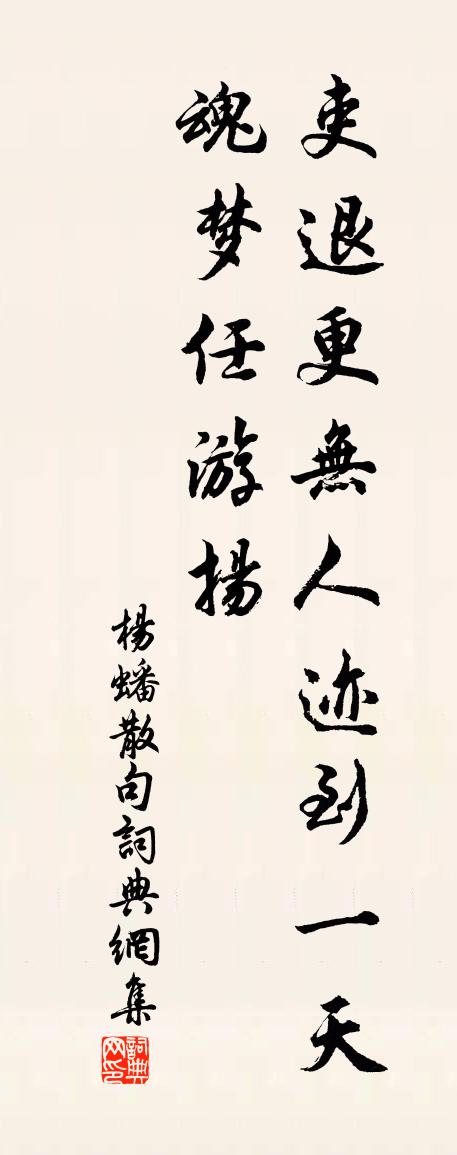 吏退更無人迹到一天
魂梦任游揚
楊蟠散句詞典網集
詞典网印